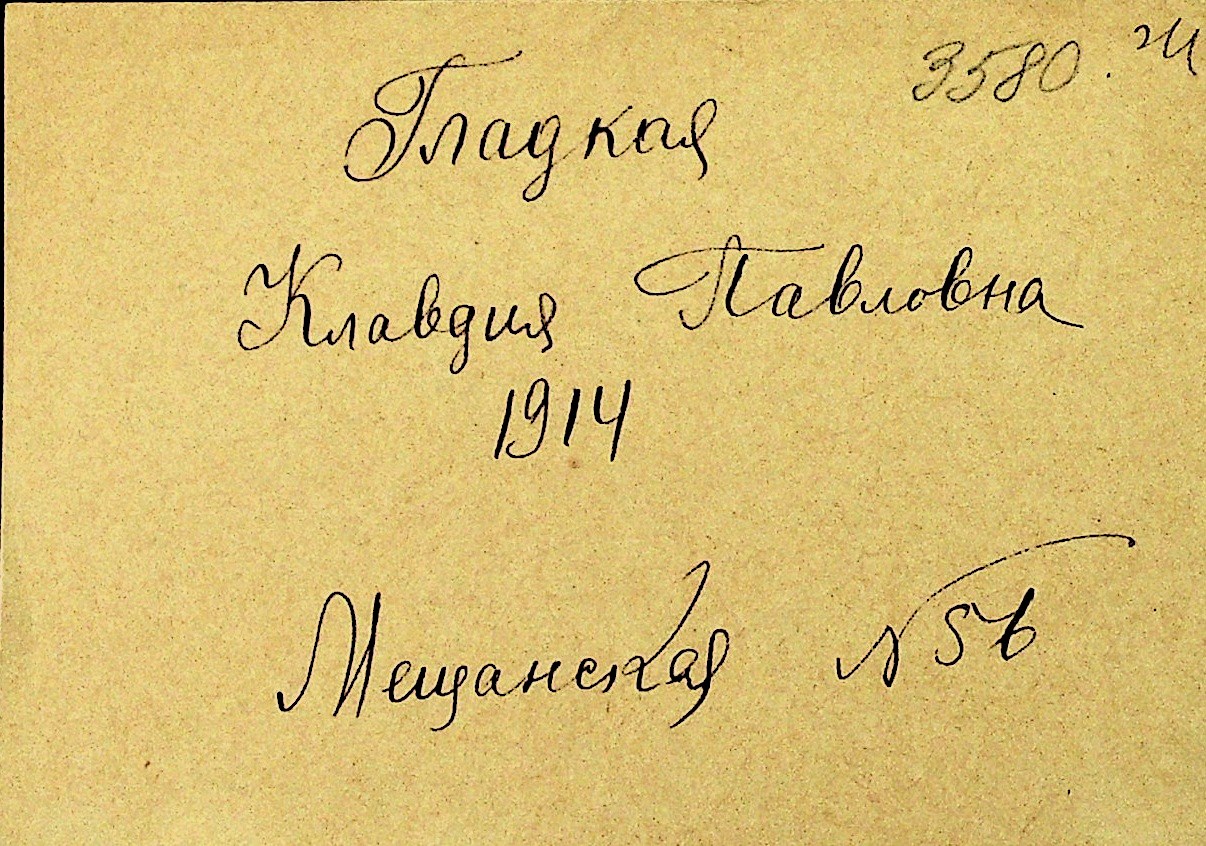 3580.
Гладкая
Клавдия Павловна
1914
Мещанская № 56